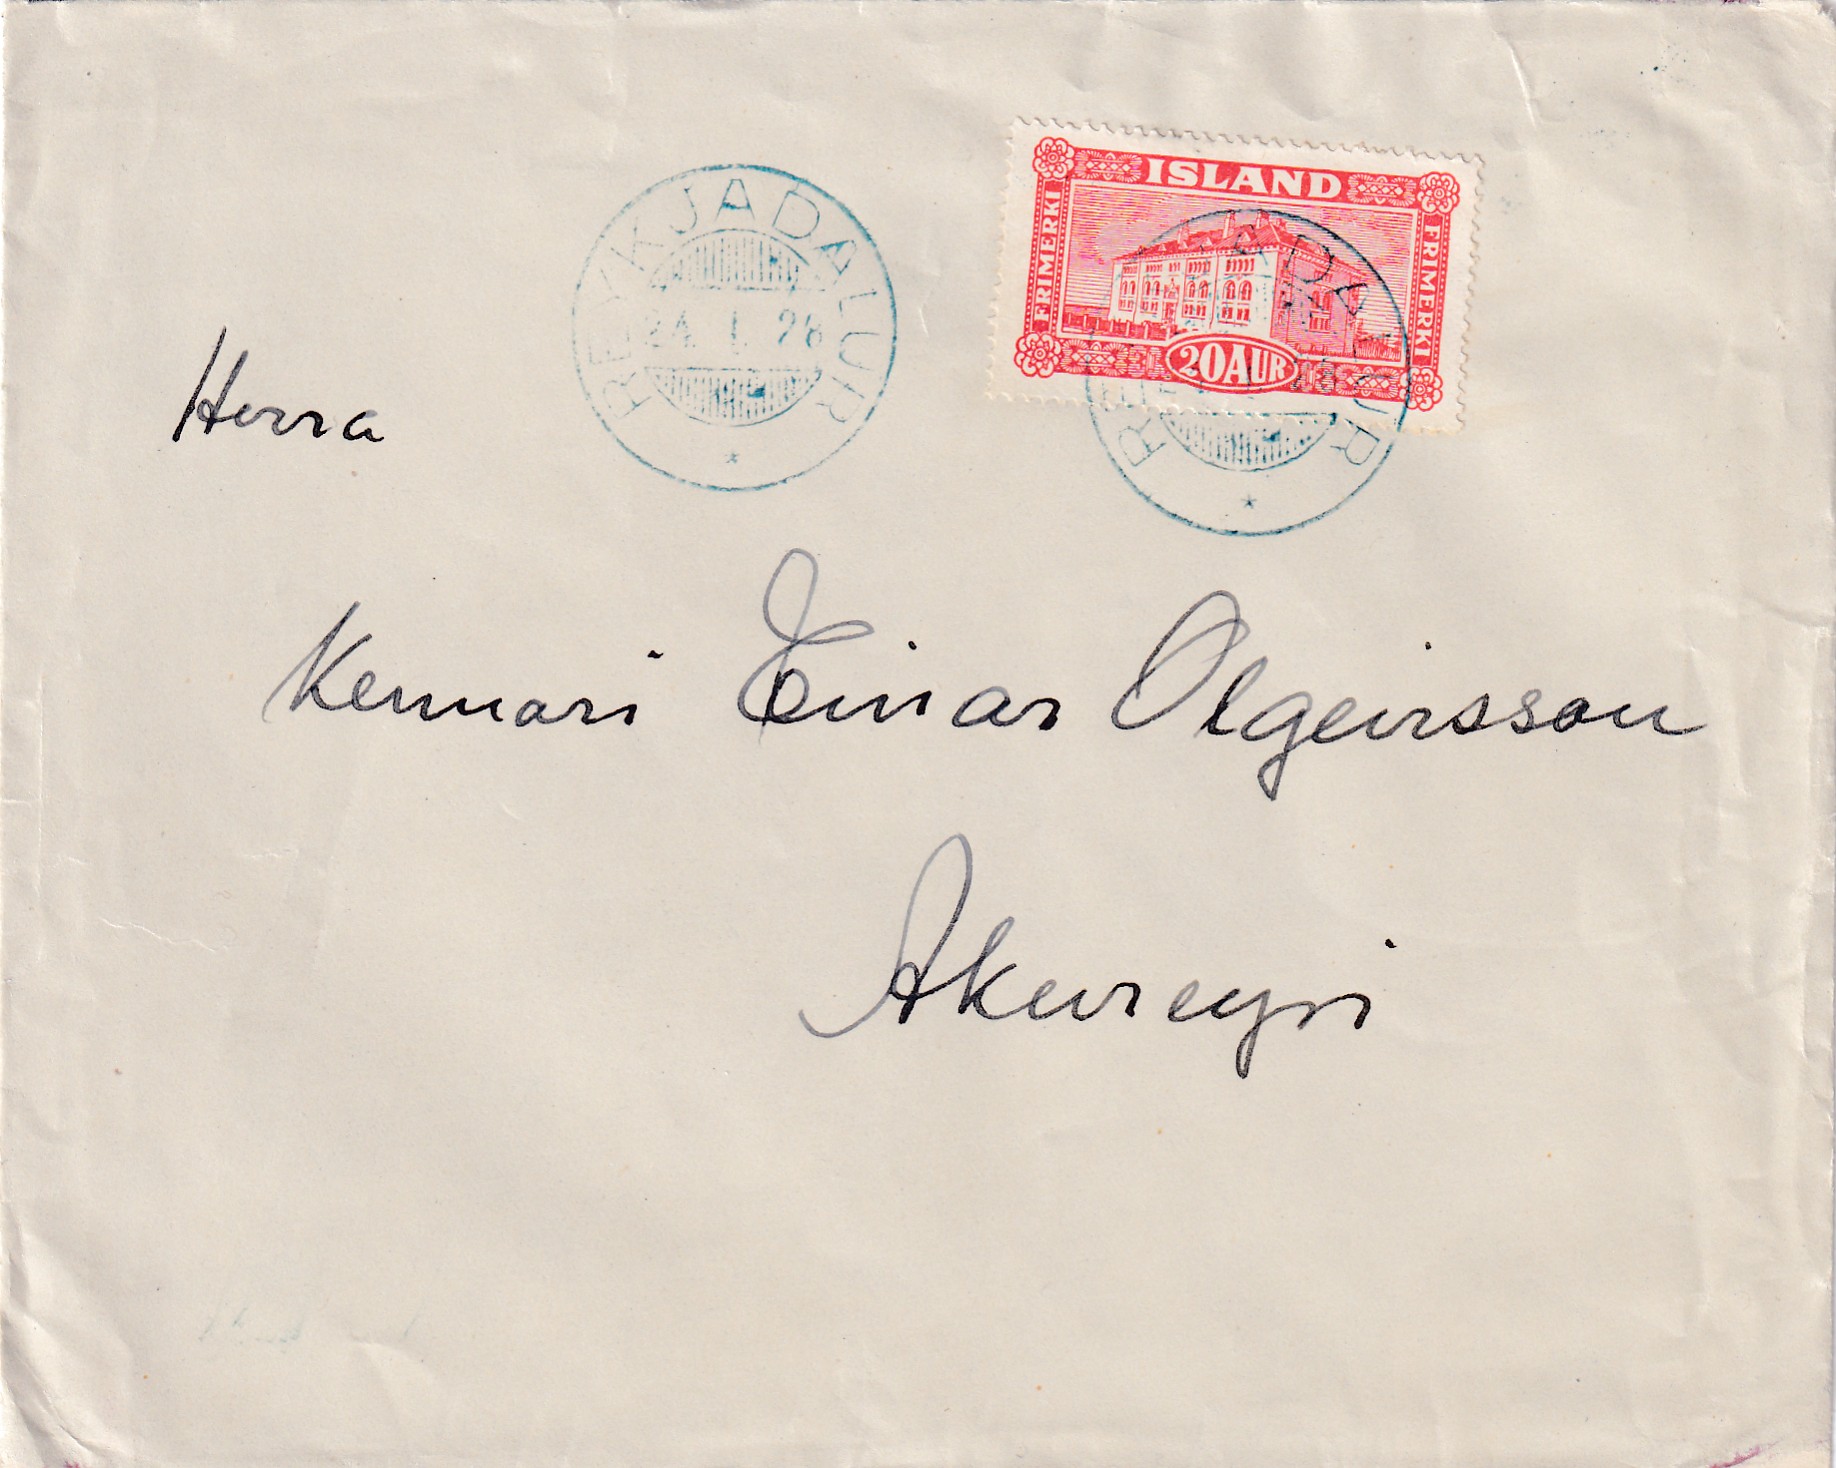 REYKJADALUR
24. I. 28
*
ISLAND
FRIMERKI
FRIMERKI
20 AUR
REYKJADALUR
*
Herra
Kennari Einar Olgeirsson
Akureyri